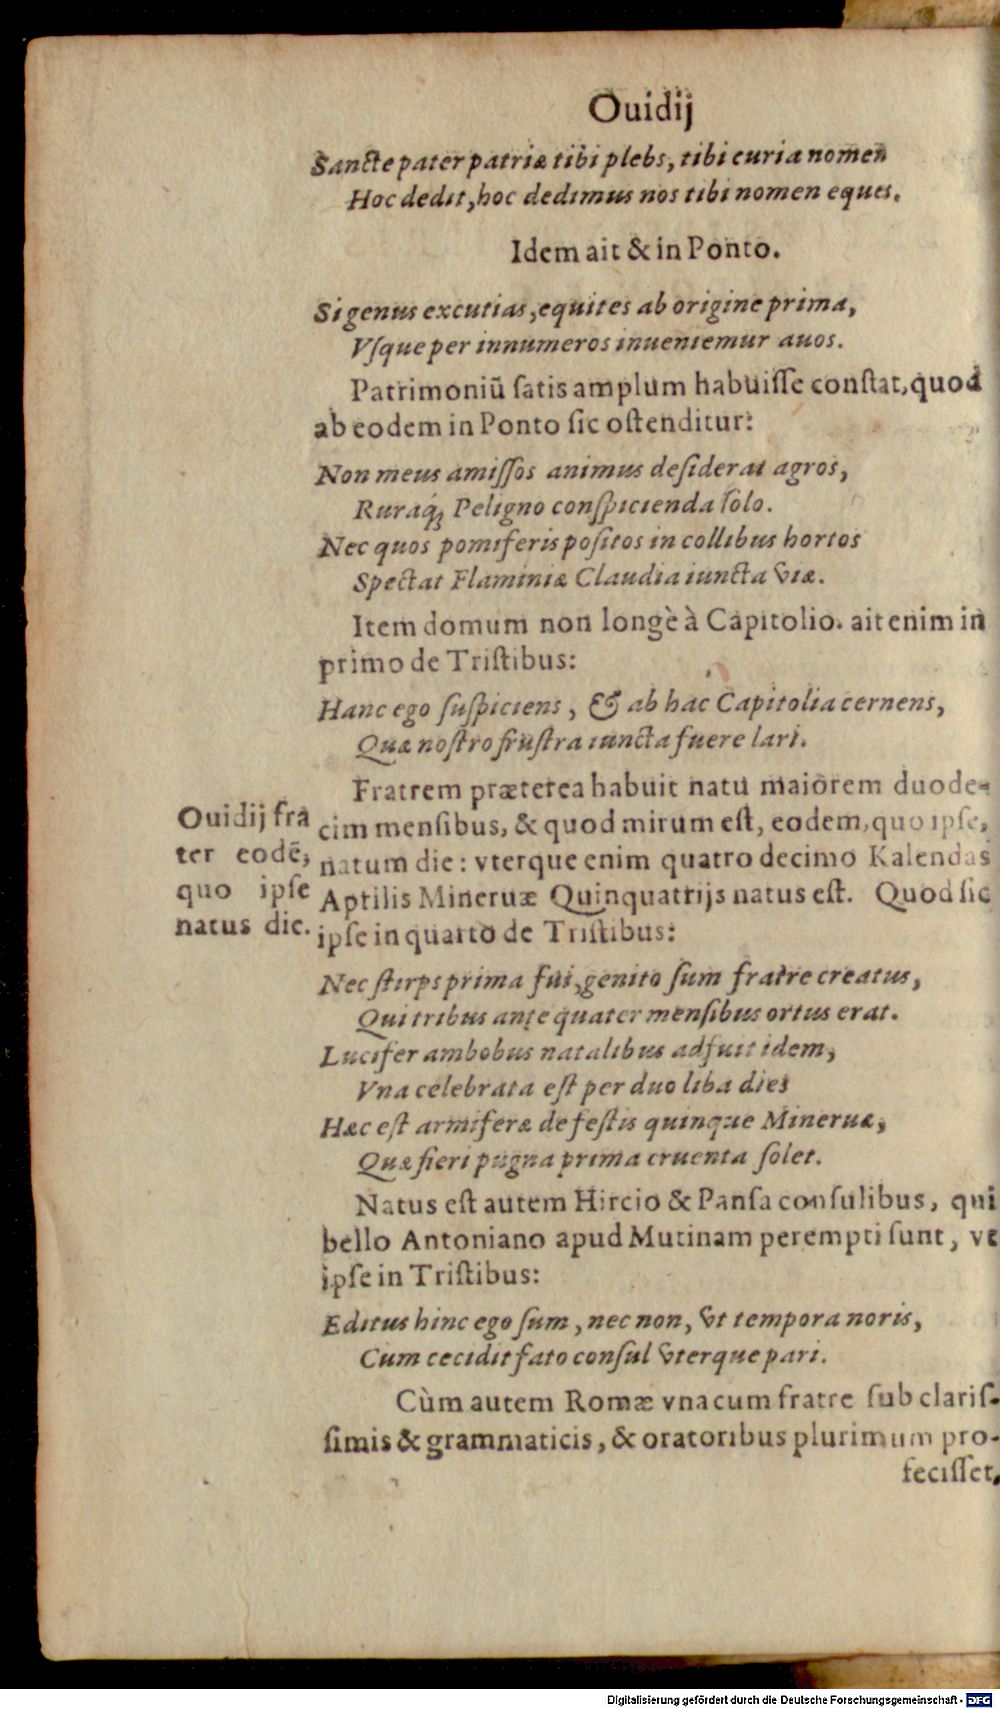 Ouidij
Sancte pater patriæ tibi plebs, tibi curia nomen
Hoc dedit, hoc dedimus nos tibi nomen eques.
Idem ait & in Ponto.
Si genus excutias, equites ab origine prima,
Vſque per innumeros inueniemur auos.
Patrimoniū ſatis amplum habuiſſe conſtat, quod
ab eodem in Ponto ſic oſtenditur:
Non meus amiſſos animus deſiderat agros,
Ruraq́; Peligno conſpicienda ſolo.
Nec quos pomiferis poſitos in collibus hortos
Spectat Flaminiæ Claudia iuncta viæ.
Item domum non longè à Capitolio. ait enim in
primo de Triſtibus:
Hanc ego ſuſpiciens, & ab hac Capitolia cernens,
Quæ noſtro fruſtra iuncta fuere lari.
Fratrem præterea habuit natu maiorem duode-
cim menſibus, & quod mirum eſt, eodem, quo ipſe,
natum die: vterque enim quatro decimo Kalendas
Aptilis Mineruæ Quinquatrijs natus eſt. Quod ſic
ipſe in quarto de Triſtibus:
Ouidij fra
ter eodē,
quo ipſe
natus die.
Nec ſtirps prima fui, genito ſum fratre creatus,
Qui tribus ante quater menſibus ortus erat.
Lucifer ambobus natalibus adfuit idem,
Vna celebrata eſt per duo liba dies
Hæc eſt armiferæ de feſtis quinque Mineruæ,
Quæ fieri pugna prima cruenta ſolet.
Natus eſt autem Hircio & Panſa conſulibus, qui
bello Antoniano apud Mutinam perempti ſunt, vt
ipſe in Triſtibus:
Editus hinc ego ſum, nec non, vt tempora noris,
Cum cecidit fato conſul vterque pari.
Cùm autem Romæ vna cum fratre ſub clariſ-
ſimis & grammaticis, & oratoribus plurimum pro-
feciſſet,
Digitalisierung gefördert durch die Deutsche Forschungsgemeinschaft - DFG